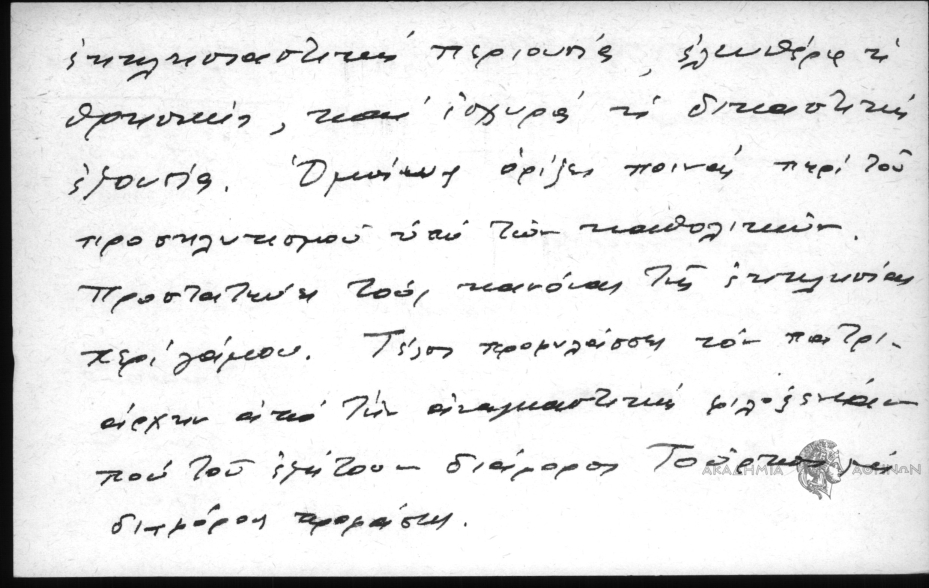 ἐκκλησιαστική περιουσία, ἐλευθέρα ἡ
θρησκεία, καί ἰσχυρά ἡ δικαστική
ἐξουσία. Ὁμοίως ὁρίζει ποινάς περί τοῦ
προσηλυτισμοῦ ὑπό τῶν καθολικῶν.
Προστατεύει τούς κανόνας τῆς ἐκκλησίας
περί γάμου. Τέλος προφυλάσσει τόν πατρι-
άρχην ἀπό τήν ἀναγκαστική φιλοξενίαν
πού τοῦ ἐζήτουν διάφοροι Τοῦρκοι
διαφόρους προφάσεις.
ΑΚΑΔΗΜΙΑ ΑΘΗΝΩΝ